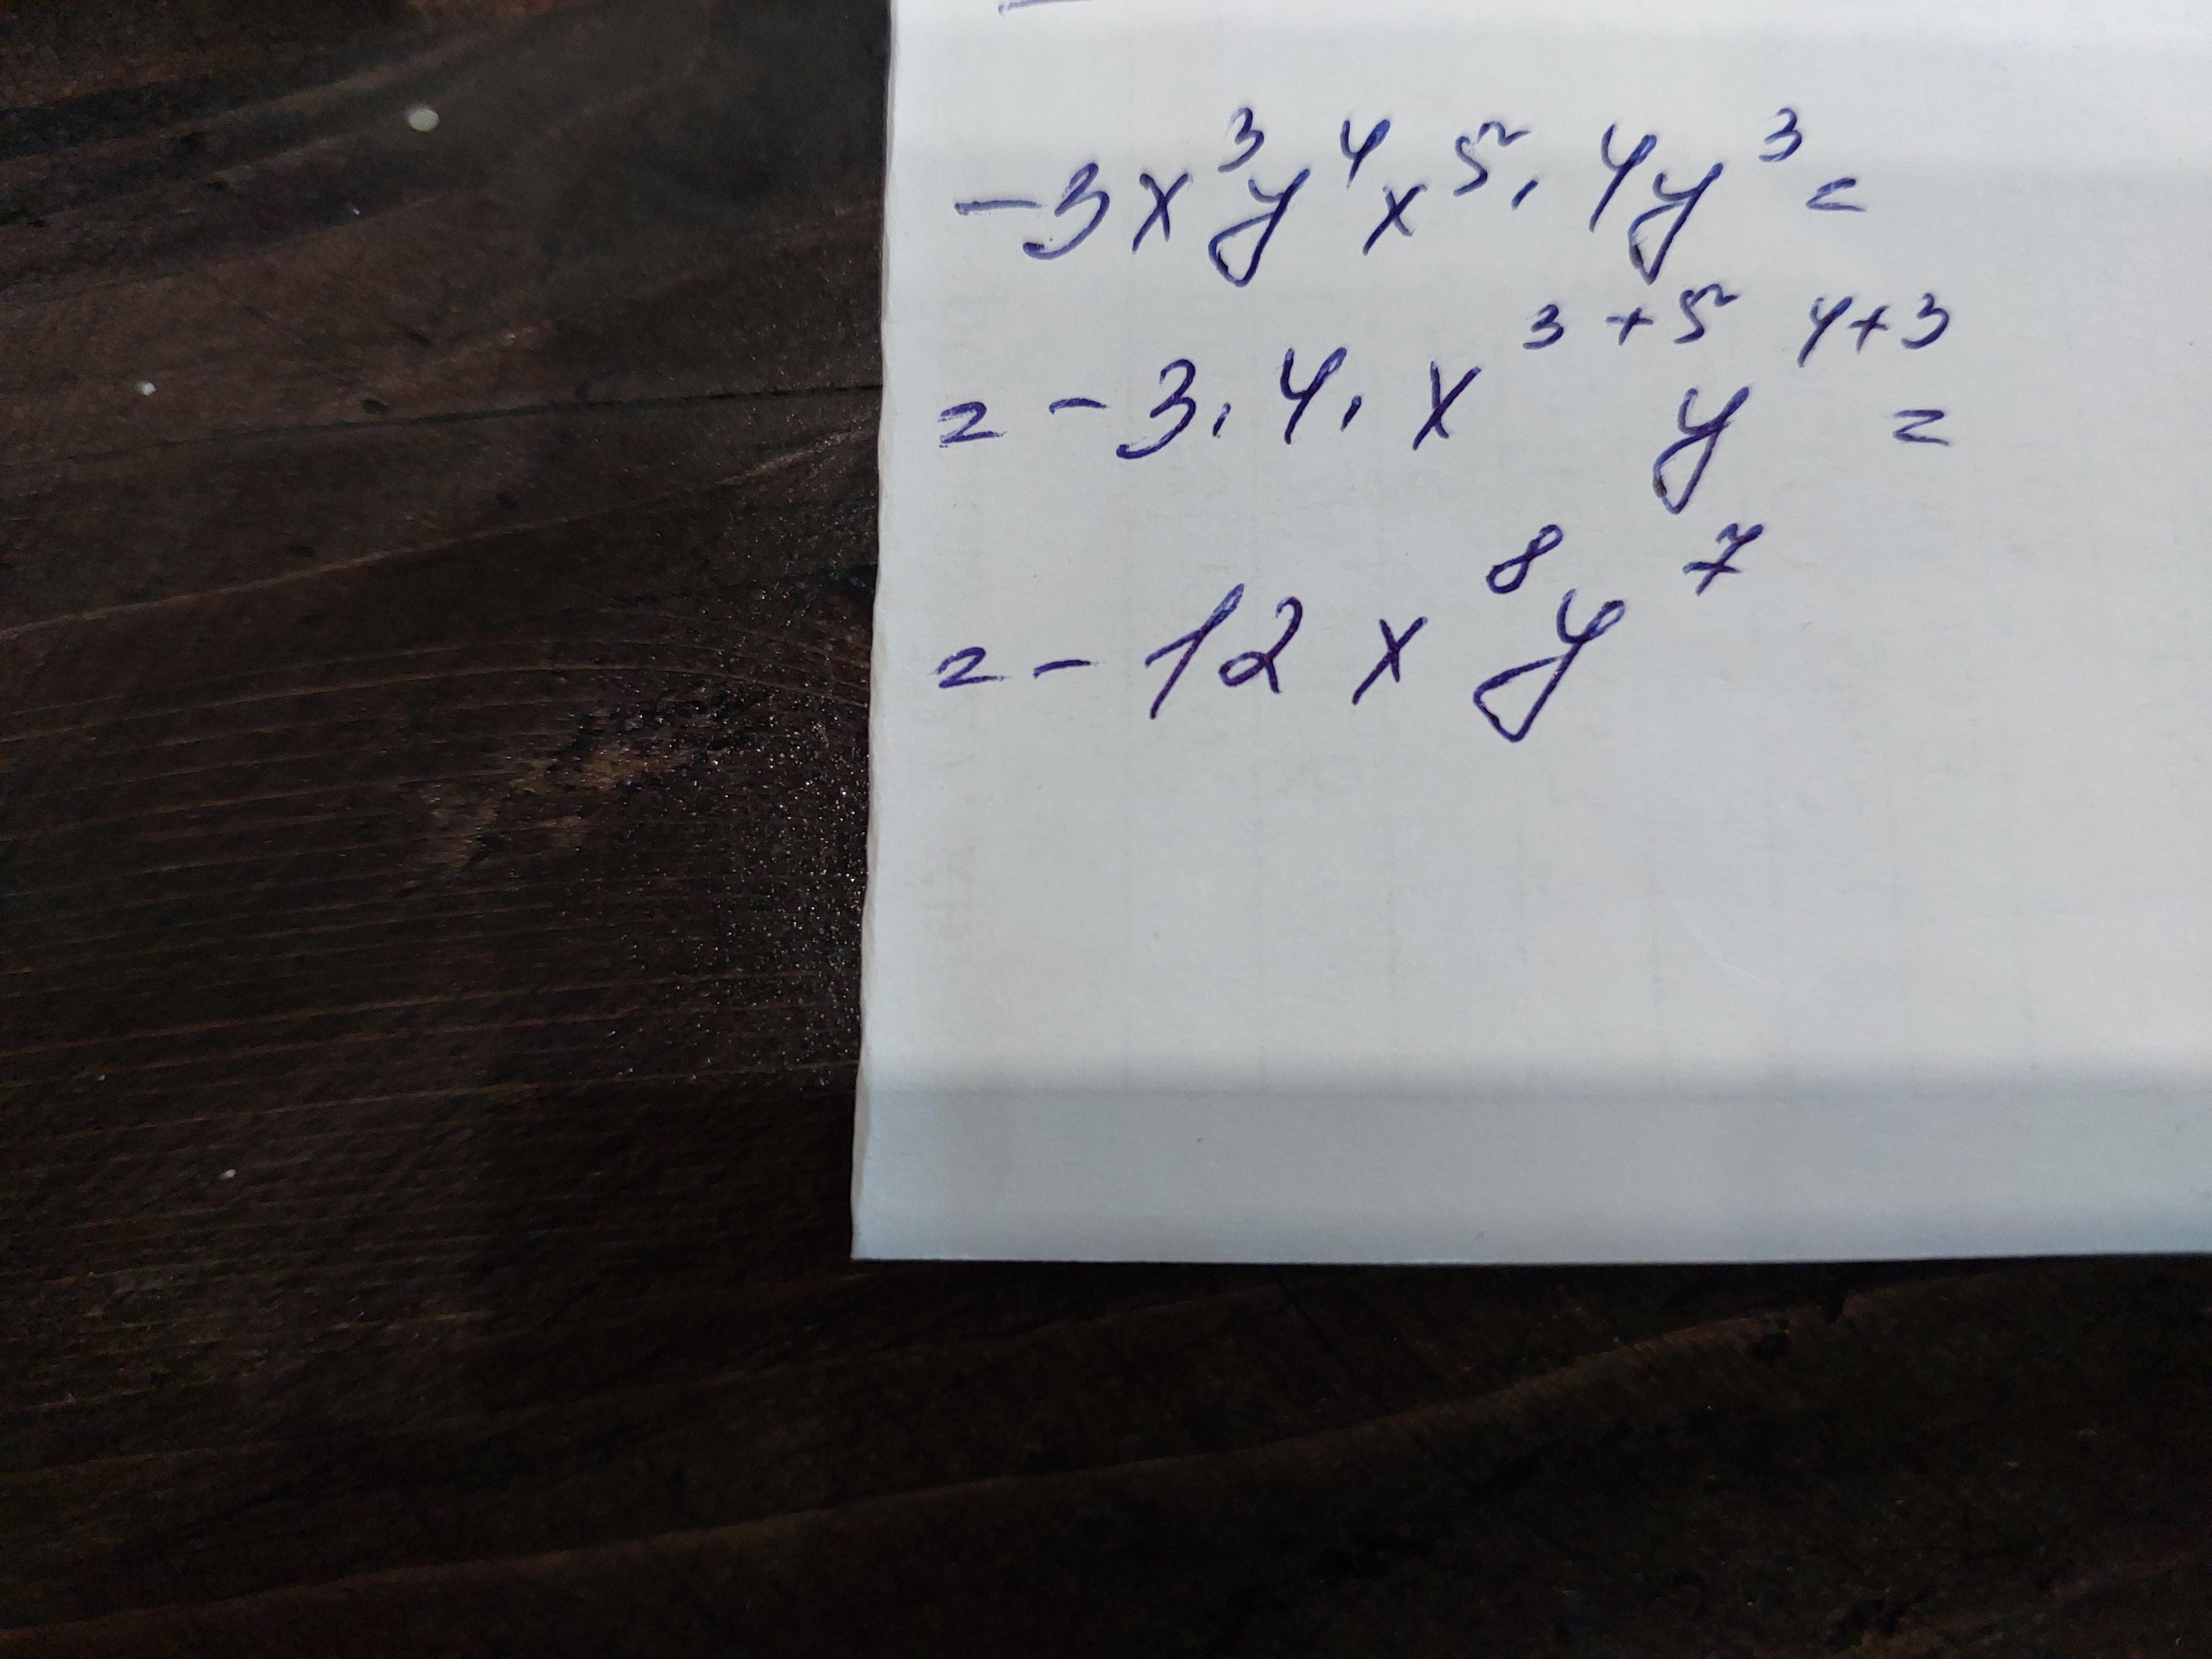 -3x³y⁴x⁵·4y³=
=-3·4·x³⁺⁵y⁴⁺³=
=-12x⁸y⁷